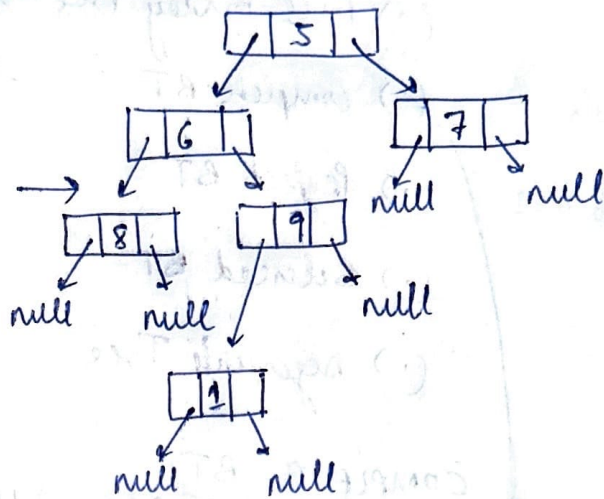 5
6 7
null null
8 9
null null null
1
null null